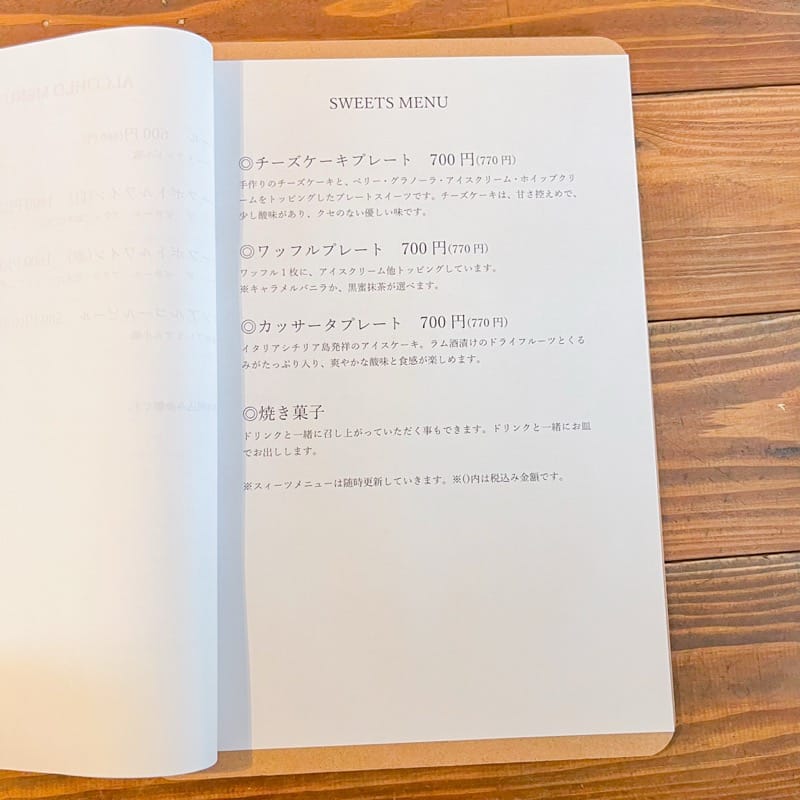 SWEETS MENU
◎チーズケーキプレート 700円(770円)
手作りのチーズケーキと、ベリー・グラノーラ・アイスクリーム・ホイップクリ
ームをトッピングしたプレートスイーツです。チーズケーキは、甘さ控えめで、
少し酸味があり、クセのない優しい味です。
◎ワッフルプレート 700円(770円)
ワッフル１枚に、アイスクリーム他トッピングしています。
※キャラメルバニラか、黒蜜抹茶が選べます。
◎カッサータプレート 700円(770円)
イタリアシチリア島発祥のアイスケーキ。ラム酒漬けのドライフルーツとくる
みがたっぷり入り、爽やかな酸味と食感が楽しめます。
◎焼き菓子
ドリンクと一緒に召し上がっていただく事もできます。ドリンクと一緒にお皿
でお出しします。
※スィーツメニューは随時更新していきます。※()内は税込み金額です。